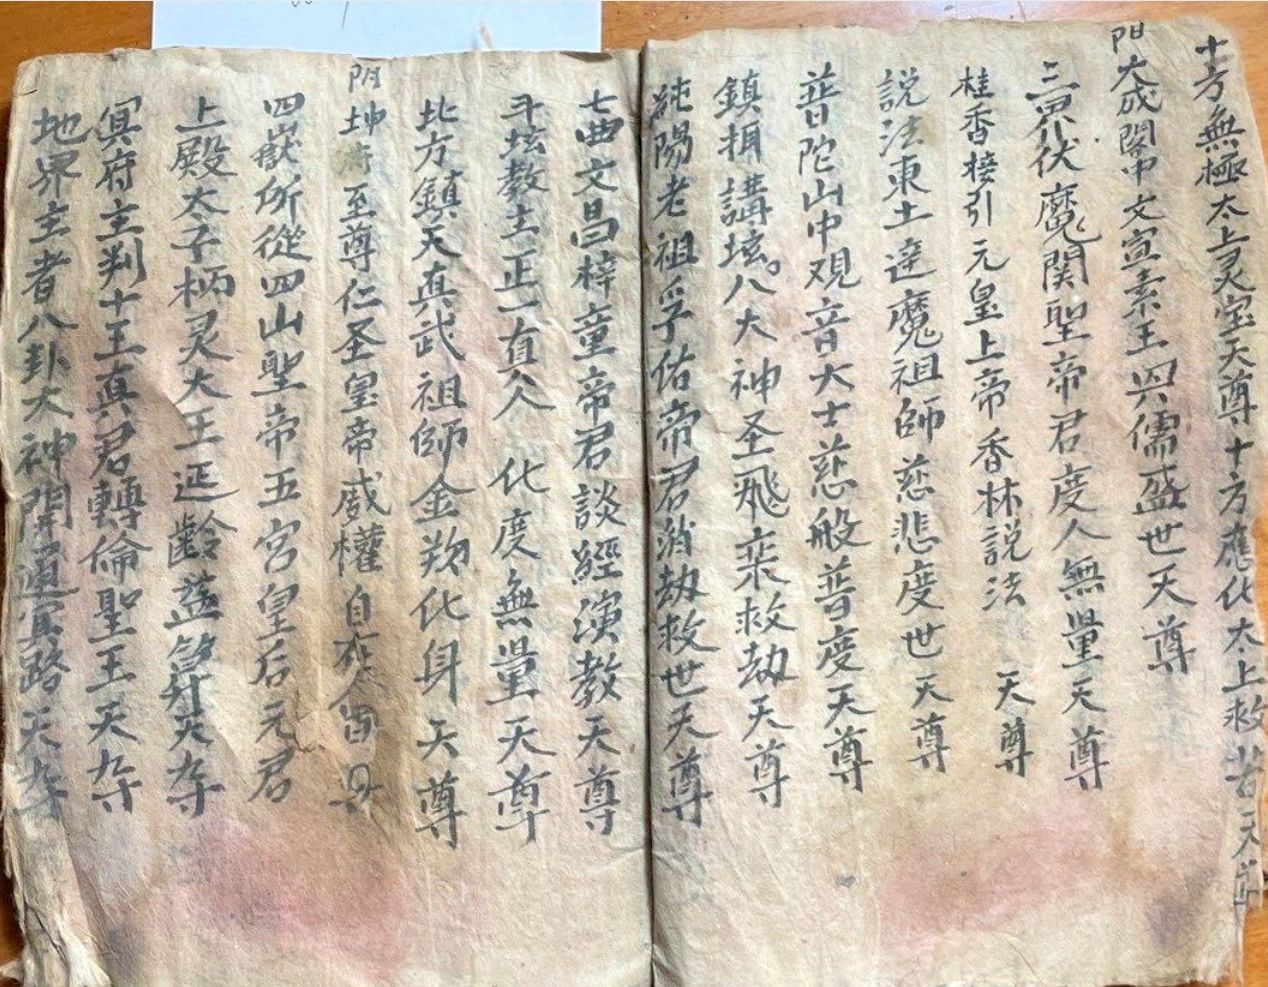 十方無極太上灵宝天尊十方應化太上救苦天尊
大成閣中文宣素王兴儒盛世天尊
三界伏魔関聖帝君度人無量天尊
桂香接引元皇上帝香林説法天尊
説法東土達魔祖師慈悲度世天尊
普陀山中观音大士慈般普度天尊
鎮損講坛八大神圣飛乘救劫天尊
純陽老祖孚佑帝君消劫救世天尊
七曲文昌梓童帝君談經演教天尊
斗坛教主正一真人化度無量天尊
北方鎮天真武祖師金
化身天尊
坤府至尊仁圣皇帝威權自在
四嶽所從四山聖帝五宮皇后元君
上殿太子柄灵大王延齡益算天尊
冥府主判十王真君轉倫聖王天尊
地界主者八卦大神開通冥路天尊